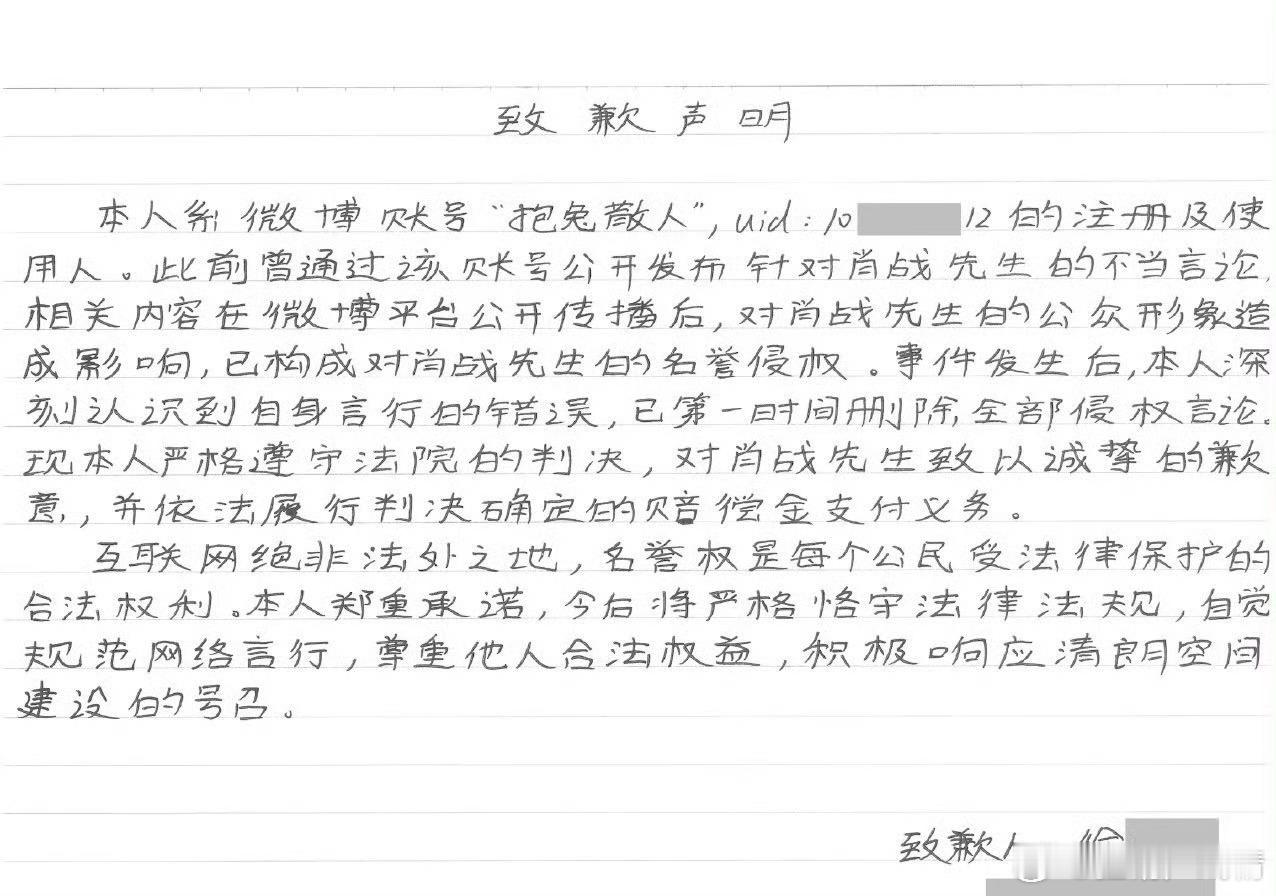 致歉声明
本人系微博账号“抱兔散人”，uid：10 12的注册及使
用人。此前曾通过该账号公开发布针对肖战先生的不当言论，
相关内容在微博平台公开传播后，对肖战先生的公众形象造
成影响，已构成对肖战先生的名誉侵权。事件发生后，本人深
刻认识到自身言行的错误，已第一时间删除全部侵权言论。
现本人严格遵守法院的判决，对肖战先生致以诚挚的歉
意，并依法履行判决确定的赔偿金支付义务。
互联网绝非法外之地，名誉权是每个公民受法律保护的
合法权利。本人郑重承诺，今后将严格恪守法律法规，自觉
规范网络言行，尊重他人合法权益，积极响应清朗空间
建设的号召。
致歉人 徐